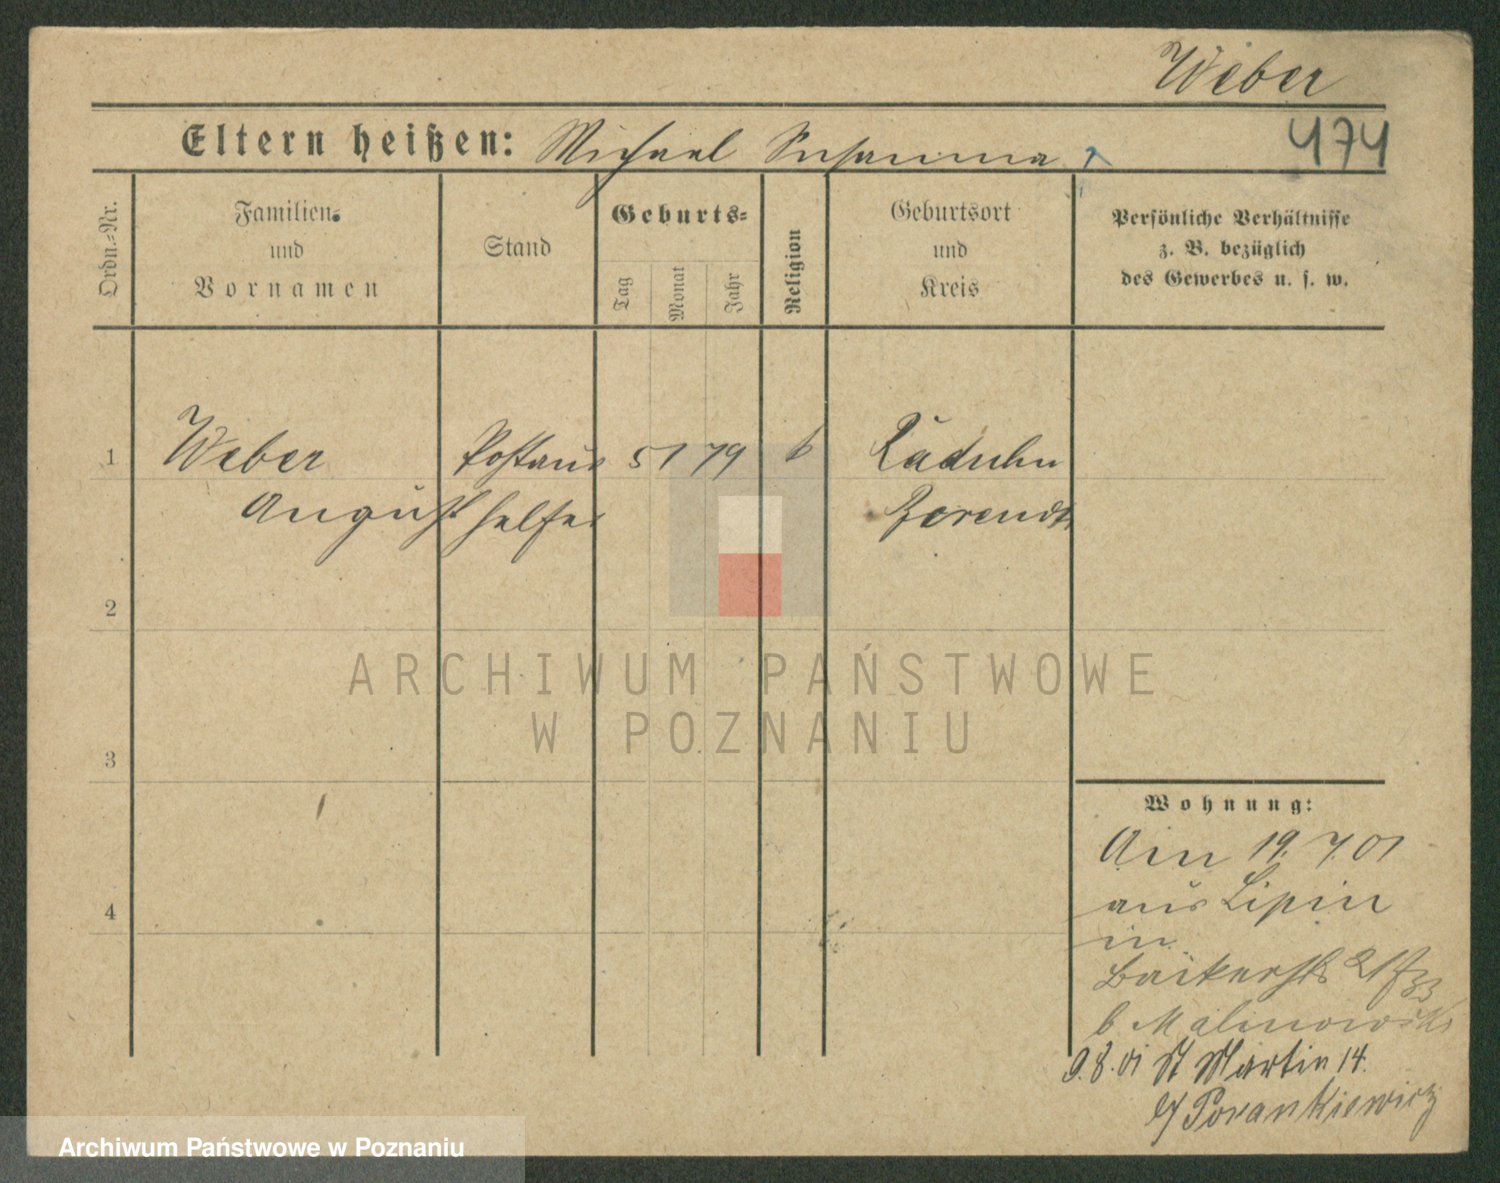 Weber
Eltern heißen: Michael Susanna
474
Ordn.-Nr.
Familien-
und
Vornamen
Stand
Geburts-
Tag
Monat
Jahr
Religion
Geburtsort
und
Kreis
Persönliche Verhältnisse
z. B. bezüglich
des Gewerbes u. s. w.
1
Weber
Postaus
5 1 79
August
helfer
Berendt
2
3
4
ARCHIWUM PAŃSTWOWE
W POZNANIU
Wohnung:
19. 7. 01
aus Lipin
in
Bäckerstr
b Malinowski
9. 8. 01 St Martin 14.
b/
Archiwum Państwowe w Poznaniu